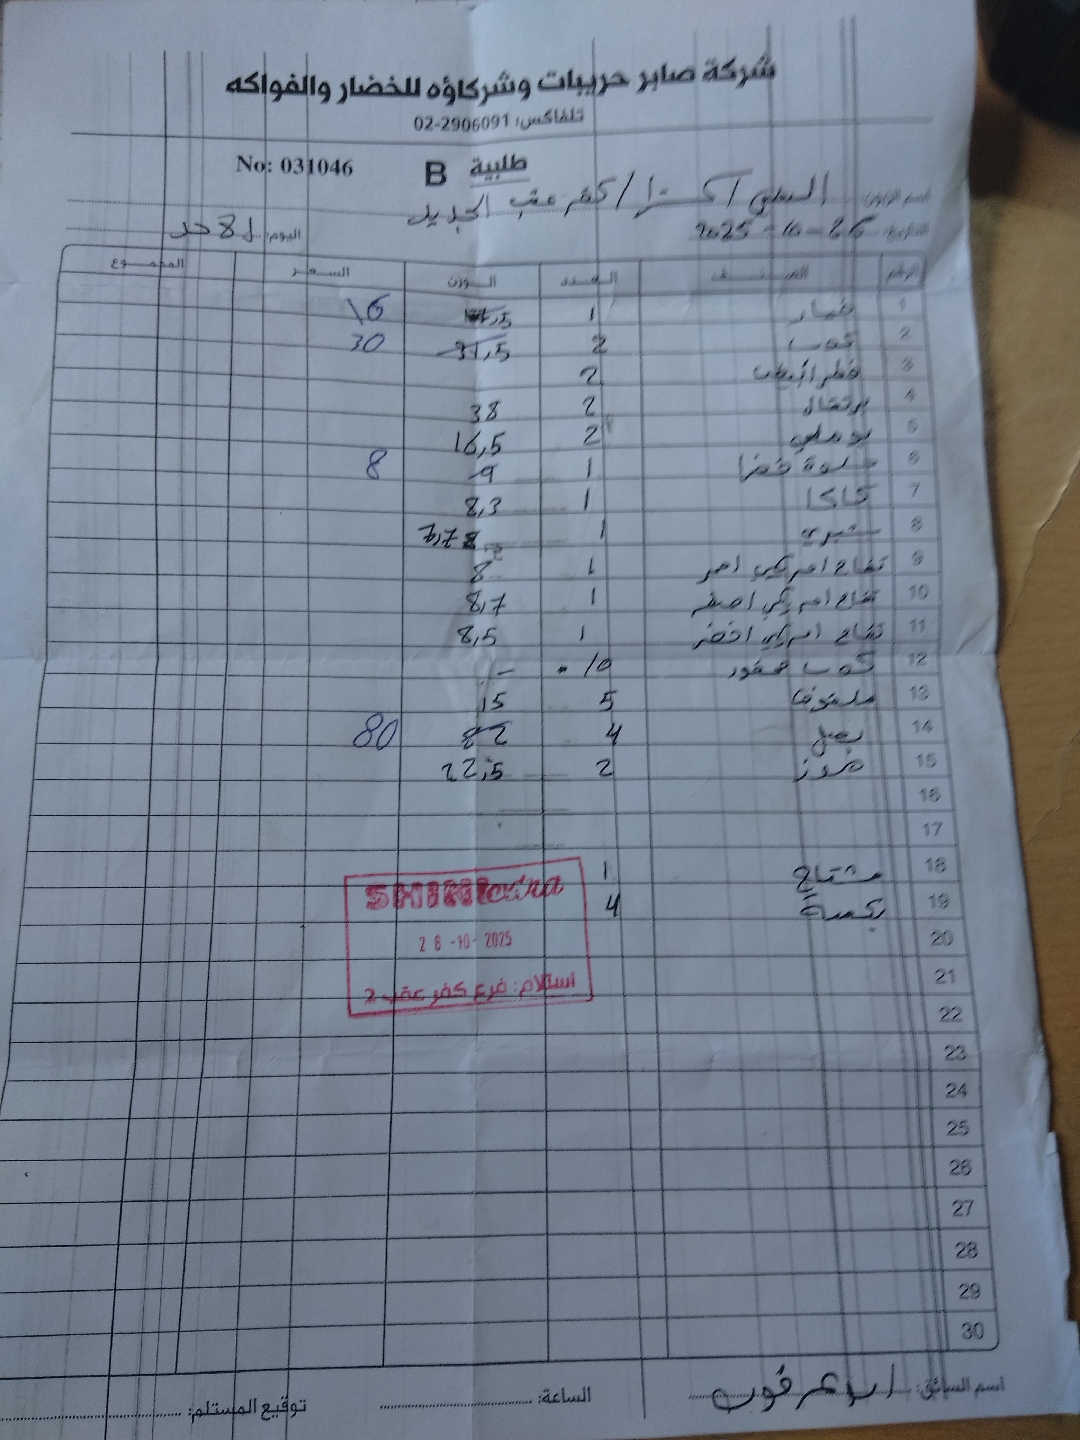 شركة صابر حريبات وشركاؤه للخضار والفواكه
تلفاكس: 02-2906091
طلبية B No: 031046
اسم الزبون: اكسترا / كفر عقب الجديد
التاريخ: 26-10-2025 اليوم: الأحد
الرقم الصنف العدد الوزن السعر المجموع
1 خيار 1 16
2 كوسا 2 31,5 30
3 فطر ابيض 2
4 برتقال 2 38
5 بوملي 2 16,5
6 حلوة خضرا 1 9 8
7 كاكا 1 8,3
8 1
9 تفاح امريكي احمر 1 8
10 تفاح امريكي اصفر 1 8,7
11 تفاح امريكي اخضر 1 8,5
12 كوسا محفور 10 -
13 ملفوف 5 15
14 بصل 4 22 80
15 2 22,5
16
17
18 مشتاح 1
19 بكسة 4
20
21
22
23
24
25
26
27
28
29
30
SHINI extra
28-10-2025
استلام: فرع كفر عقب 2
اسم السائق: الساعة: توقيع المستلم: